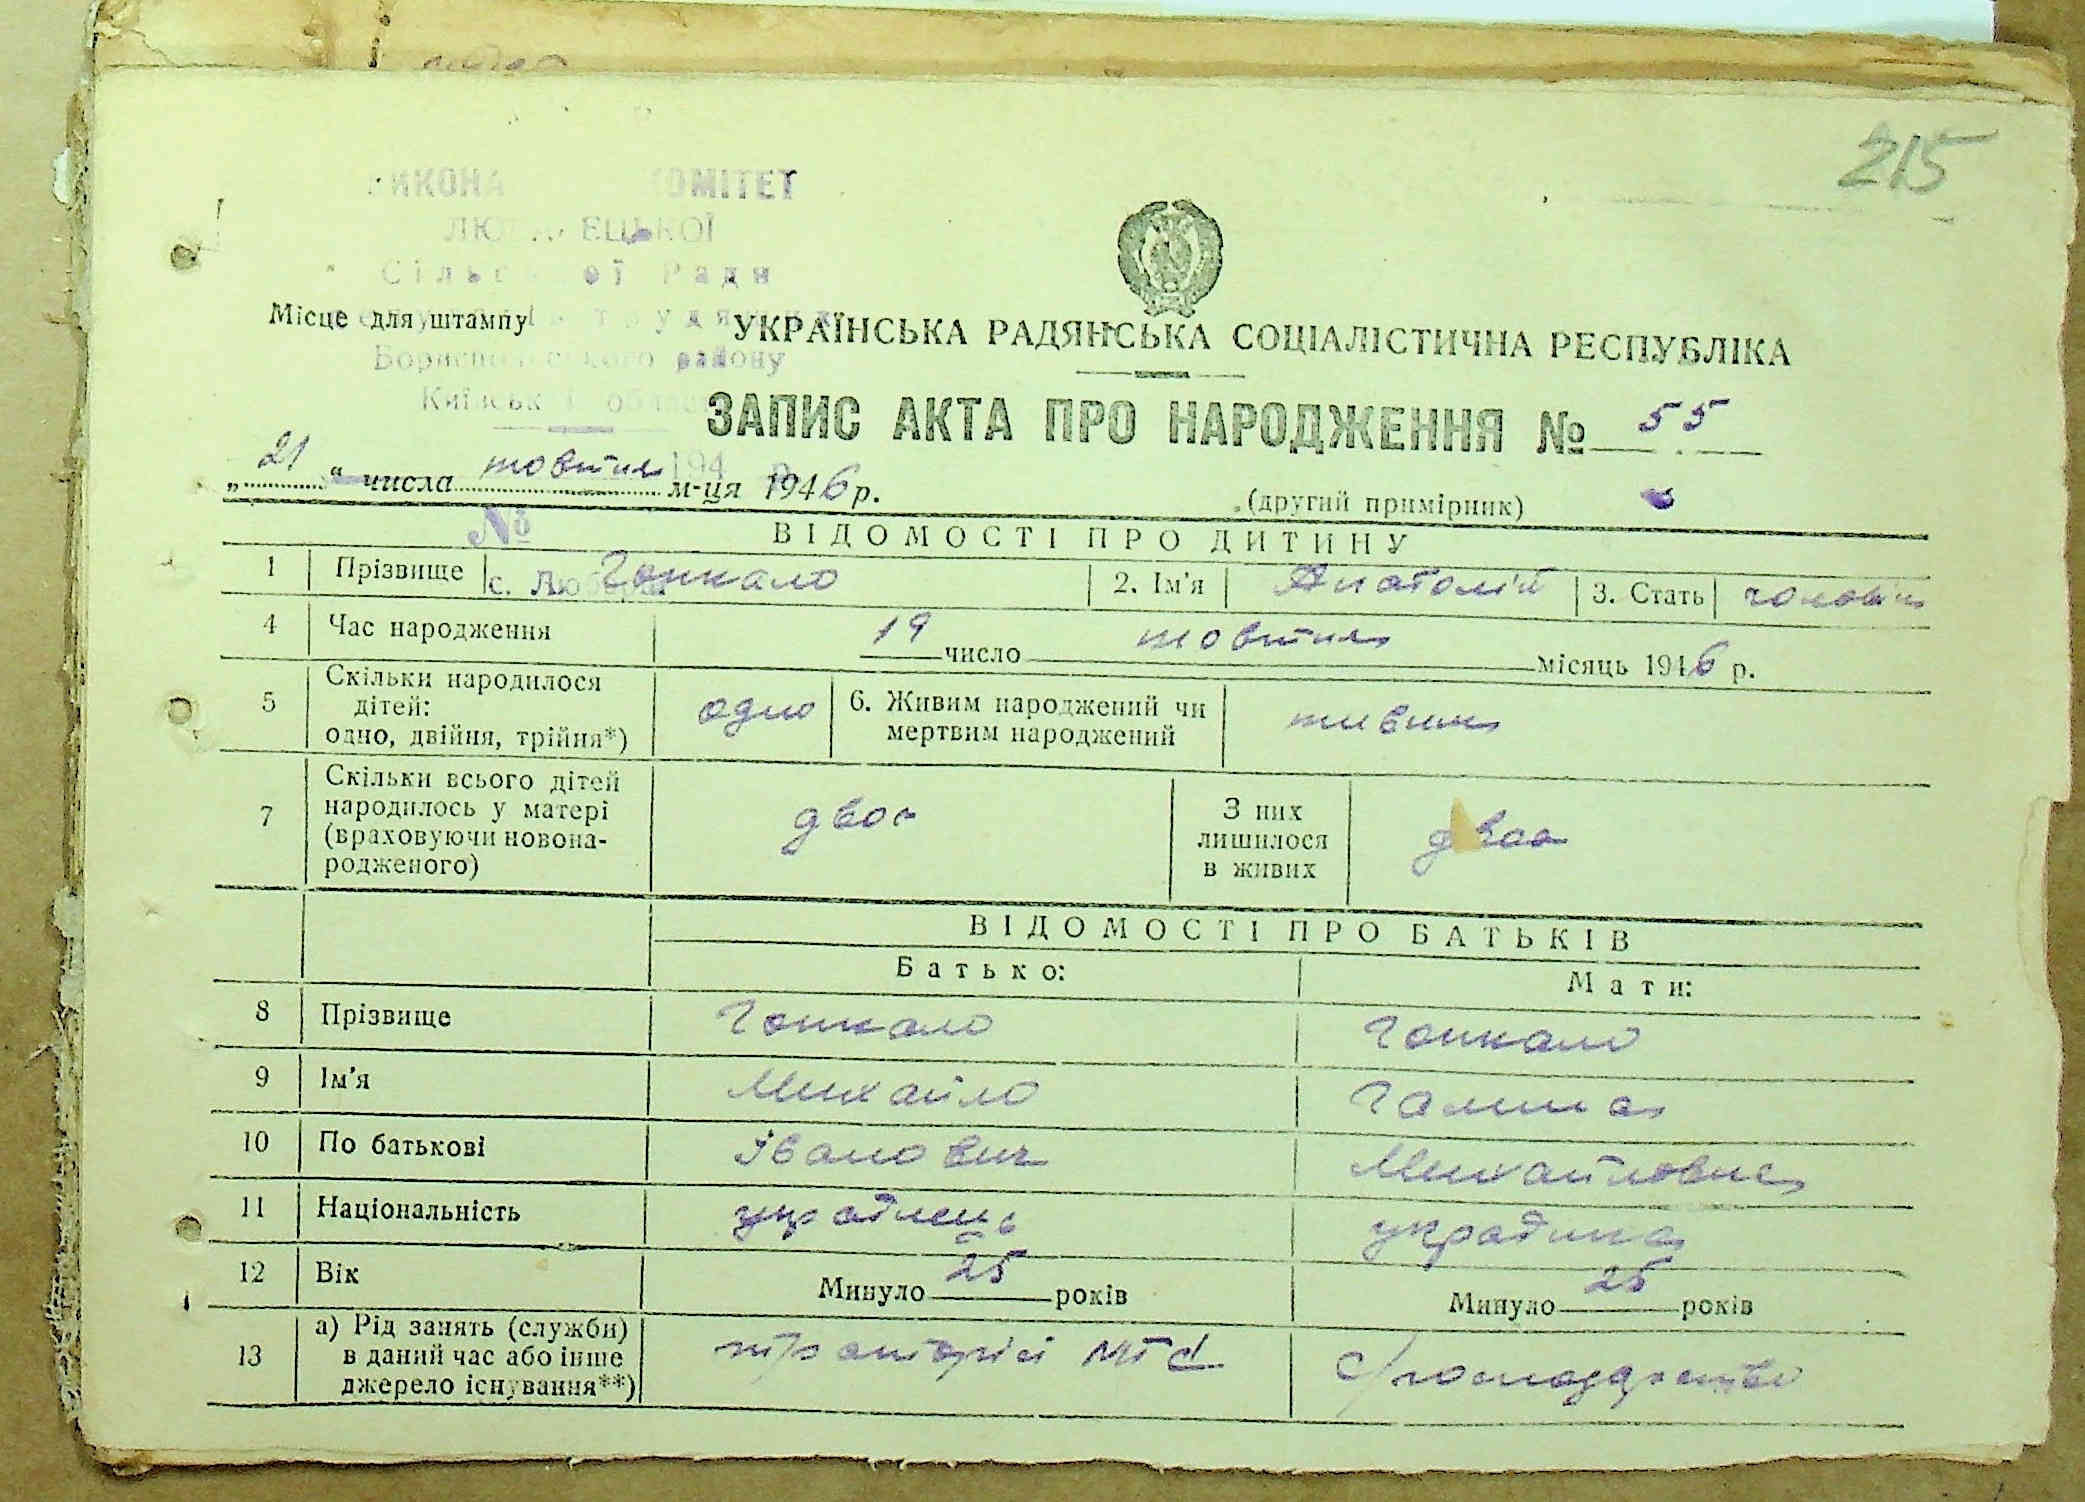 215
КОМІТЕТ
Сільської Ради
Місце для штампу
Бориспільського району
Київської області
УКРАЇНСЬКА РАДЯНСЬКА СОЦІАЛІСТИЧНА РЕСПУБЛІКА
ЗАПИС АКТА ПРО НАРОДЖЕННЯ № 55
„21“ числа товтня м-ця 1946 р.
(другий примірник)
№
ВІДОМОСТІ ПРО ДИТИНУ
1 Прізвище с. Гонкало 2. Ім'я Анатолій 3. Стать чоловіч
4 Час народження 19 число товтня місяць 1946 р.
5 Скільки народилося дітей: одно, двійня, трійня*) одно 6. Живим народжений чи мертвим народжений живим
7 Скільки всього дітей народилось у матері (враховуючи новонародженого) двоє З них лишилося в живих двоє
ВІДОМОСТІ ПРО БАТЬКІВ
Батько: Мати:
8 Прізвище Гонкало Гонкало
9 Ім'я Михайло Галина
10 По батькові Іванович Михайловна
11 Національність українець украінка
12 Вік Минуло 25 років Минуло 25 років
13 а) Рід занять (служби) в даний час або інше джерело існування**) тракторист МТС с/господарство